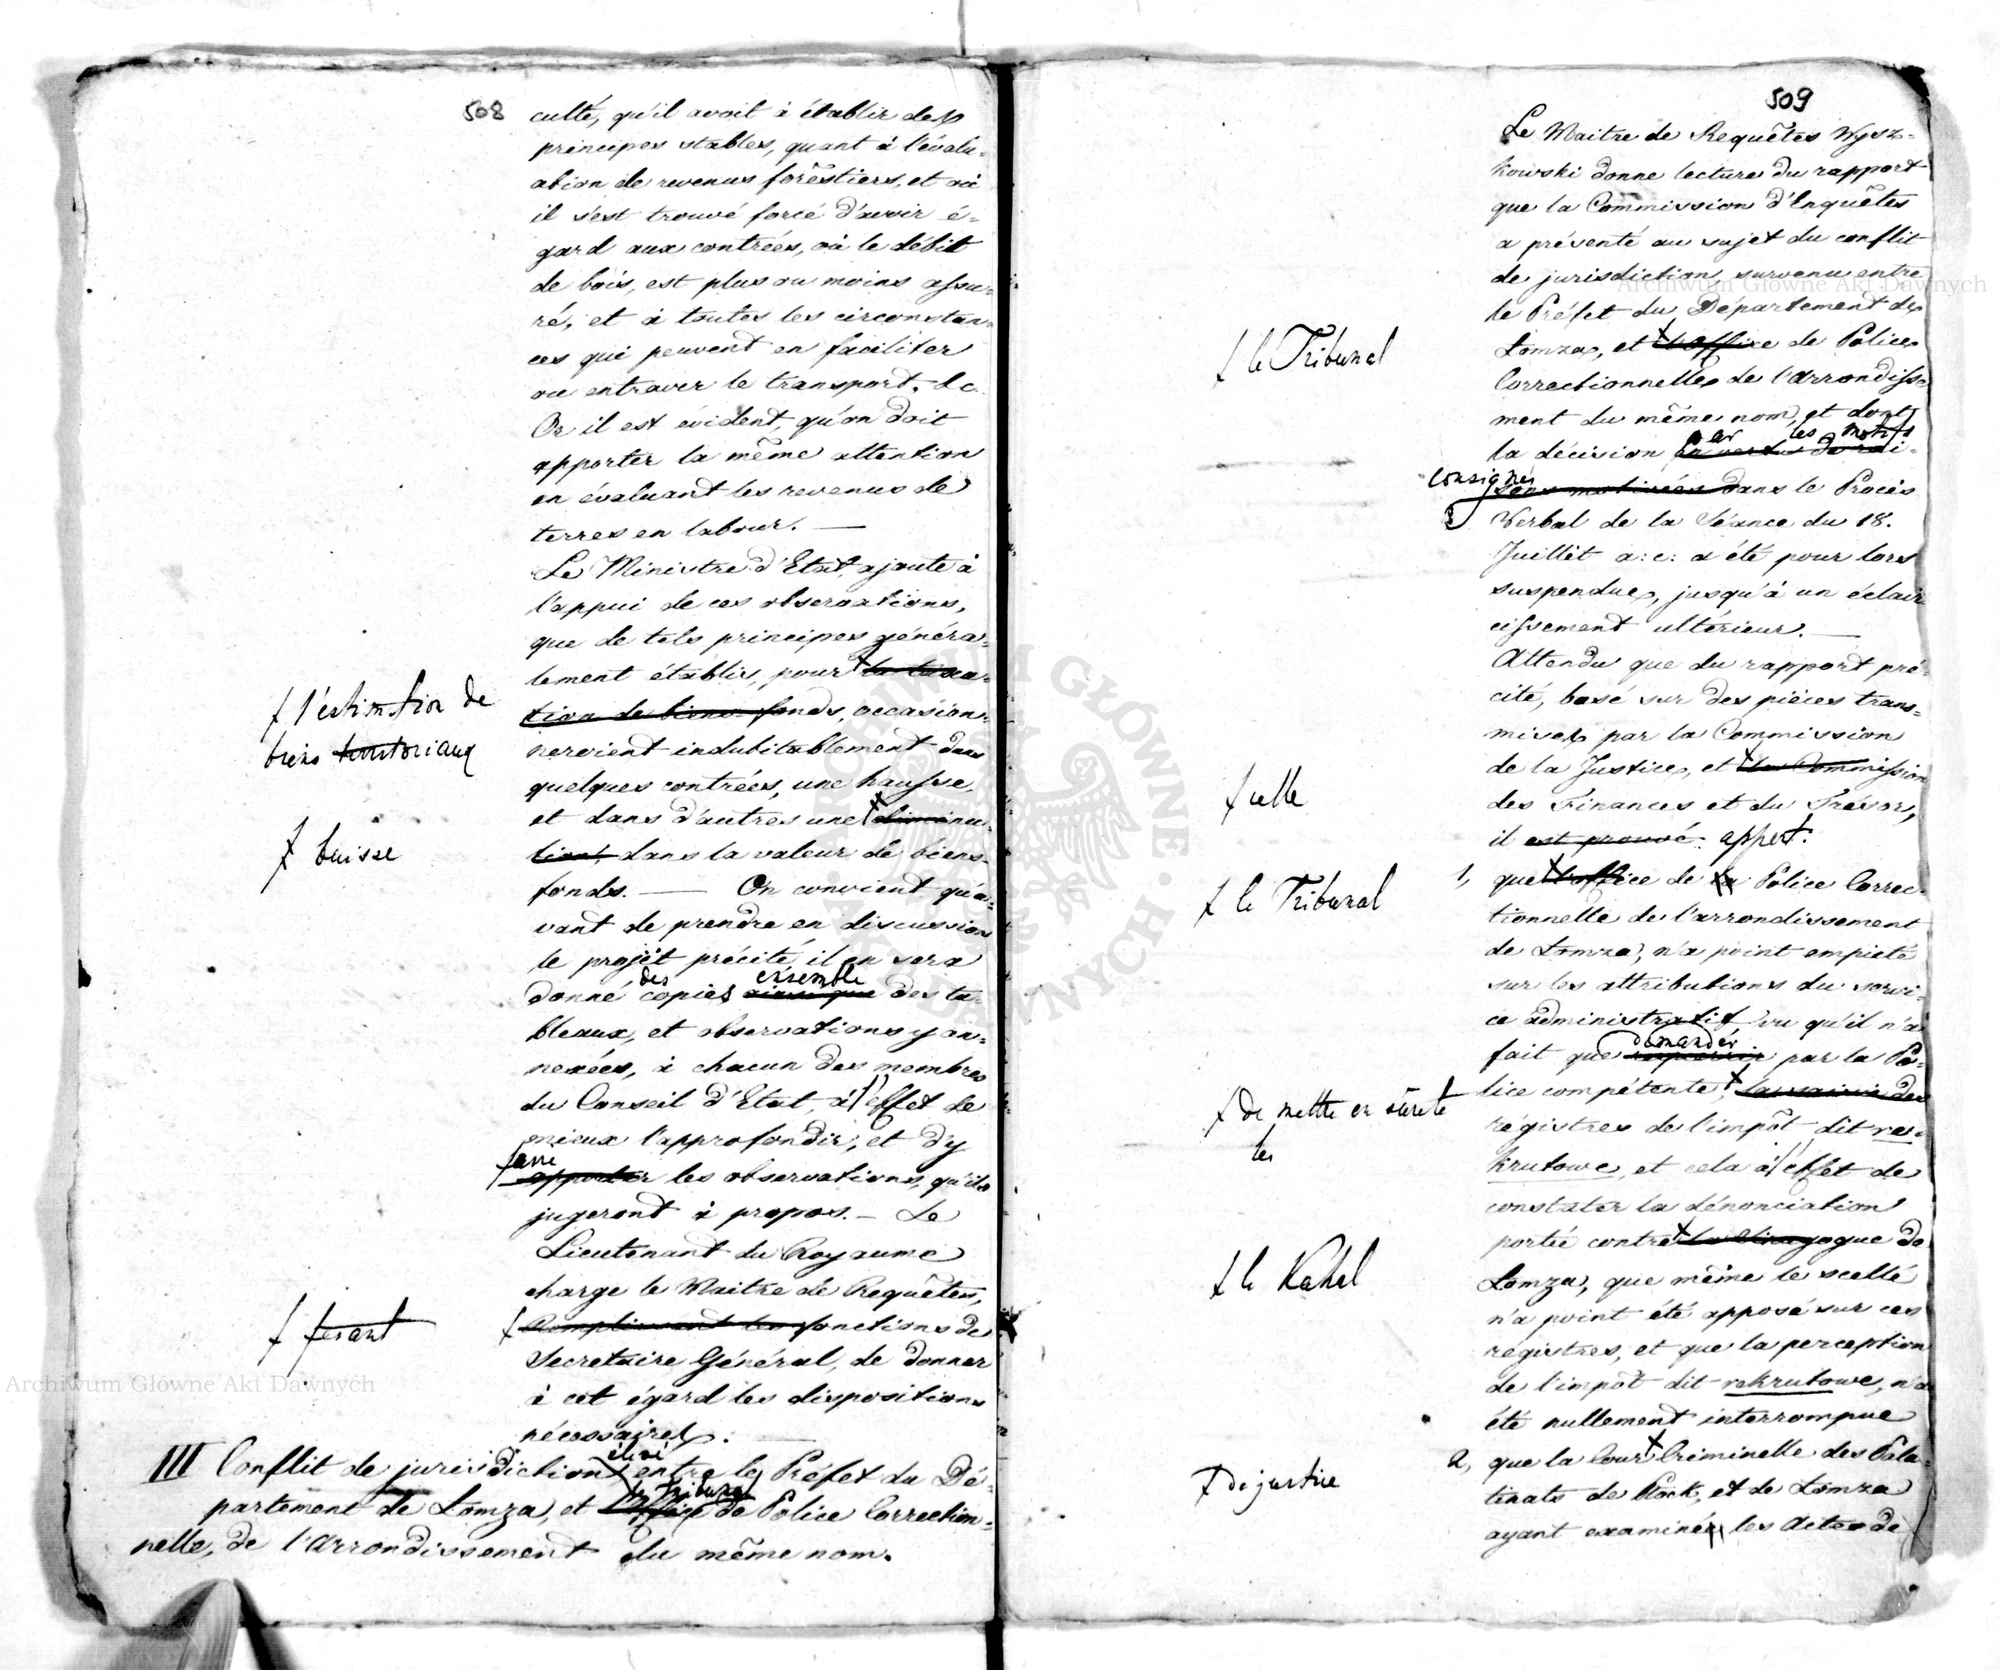 508
culté, qu'il avoit à établir des
principes stables, quant à l'évalu-
ation de revenus forêstiers, et où
il s'est trouvé forcé d'avoir é-
gard aux contrées, où le débit
de bois, est plus ou moins assu-
ré, et à toutes les circonstan-
ces qui peuvent en faciliter
ou entraver le transport. &c.
Or il est évident, qu'on doit
apporter la même attention
en évaluant les revenus de
terres en labour. —
Le Ministre d'Etat, ajoute à
l'appui de ces observations,
que de tels principes généra-
lement établis, pour la taxa-
tion de biens fonds, occasion-
neroient indubitablement dans
quelques contrées, une hausse
et dans d'autres une diminu-
tion, dans la valeur de biens-
fonds. — On convient qu'a-
vant de prendre en discussion
le projet précité, il en sera
des ensemble
donné copies ainsi que des ta-
bleaux, et observations y an-
nexées, à chacun des membres
du Conseil d'Etat, à l'effet de
mieux l'approfondir, et d'y
faire
apporter les observations, qu'ils
jugeront à propos. — Le
Lieutenant du Royaume
charge le Maitre de Requêtes,
remplissant les fonctions de
Secretaire Général, de donner
à cet égard les dispositions
nécessaires. —
l'estimation de
biens territoriaux
baisse
fesant
III Conflit de jurisdiction élevé entre le Préfet du Dé-
le Tribunal
partement de Lomza, et l'Office de Police Correction-
nelle, de l'Arrondissement du même nom.
509
Le Maitre de Requêtes Wysz-
kowski donne lecture du rapport
que la Commission d'Enquêtes
a présenté au sujet du conflit
de jurisdiction survenu entre
le Préfet du Département de
Lomza, et l'Office de Police
Correctionnelle de l'Arrondisse-
ment du même nom, et dont
par les motifs
la décision en vertu de rai-
consignés
sons motivées dans le Procès
Verbal de la Séance du 18.
Juillet a: c: a été pour lors
suspendue, jusqu'à un éclair
cissement ultérieur. —
Attendu que du rapport pré-
cité, basé sur des pièces trans-
mises par la Commission
de la Justice, et la Commission
des Finances et du Trésor,
il est prouvé: appert:
1, que l'office de la Police Correc-
tionnelle de l'arrondissement
de Lomza, n'a point empieté
sur les attributions du servi-
ce administratif, vu qu'il n'a
demander
fait que par la Po-
lice compétente, la saisie des
régistres de l'impôt dit re-
krutowe, et cela à l'effet de
constater la dénonciation
portée contre la Sinagogue de
Lomza, que même le scellé
n'a point été apposé sur ces
régistres, et que la perception
de l'impôt dit rekrutowe, n'a
été nullement interrompue
2, que la Cour Criminelle des Pala-
tinats de Plock, et de Lomza
ayant examiné les Actes de
le Tribunal
celle
le Tribunal
de mettre en sûreté
les
le Kahal
de justice
Archiwum Główne Akt Dawnych
Archiwum Główne Akt Dawnych
ARCHIWUM GŁÓWNE AKT DAWNYCH